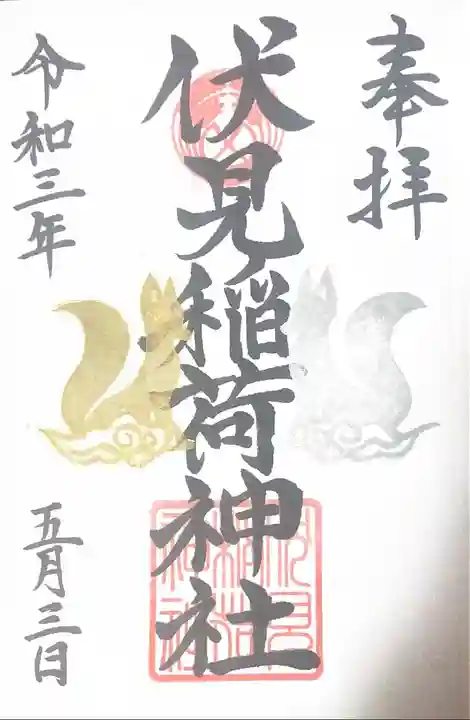 奉拝
伏見稲荷神社
令和三年
五月三日